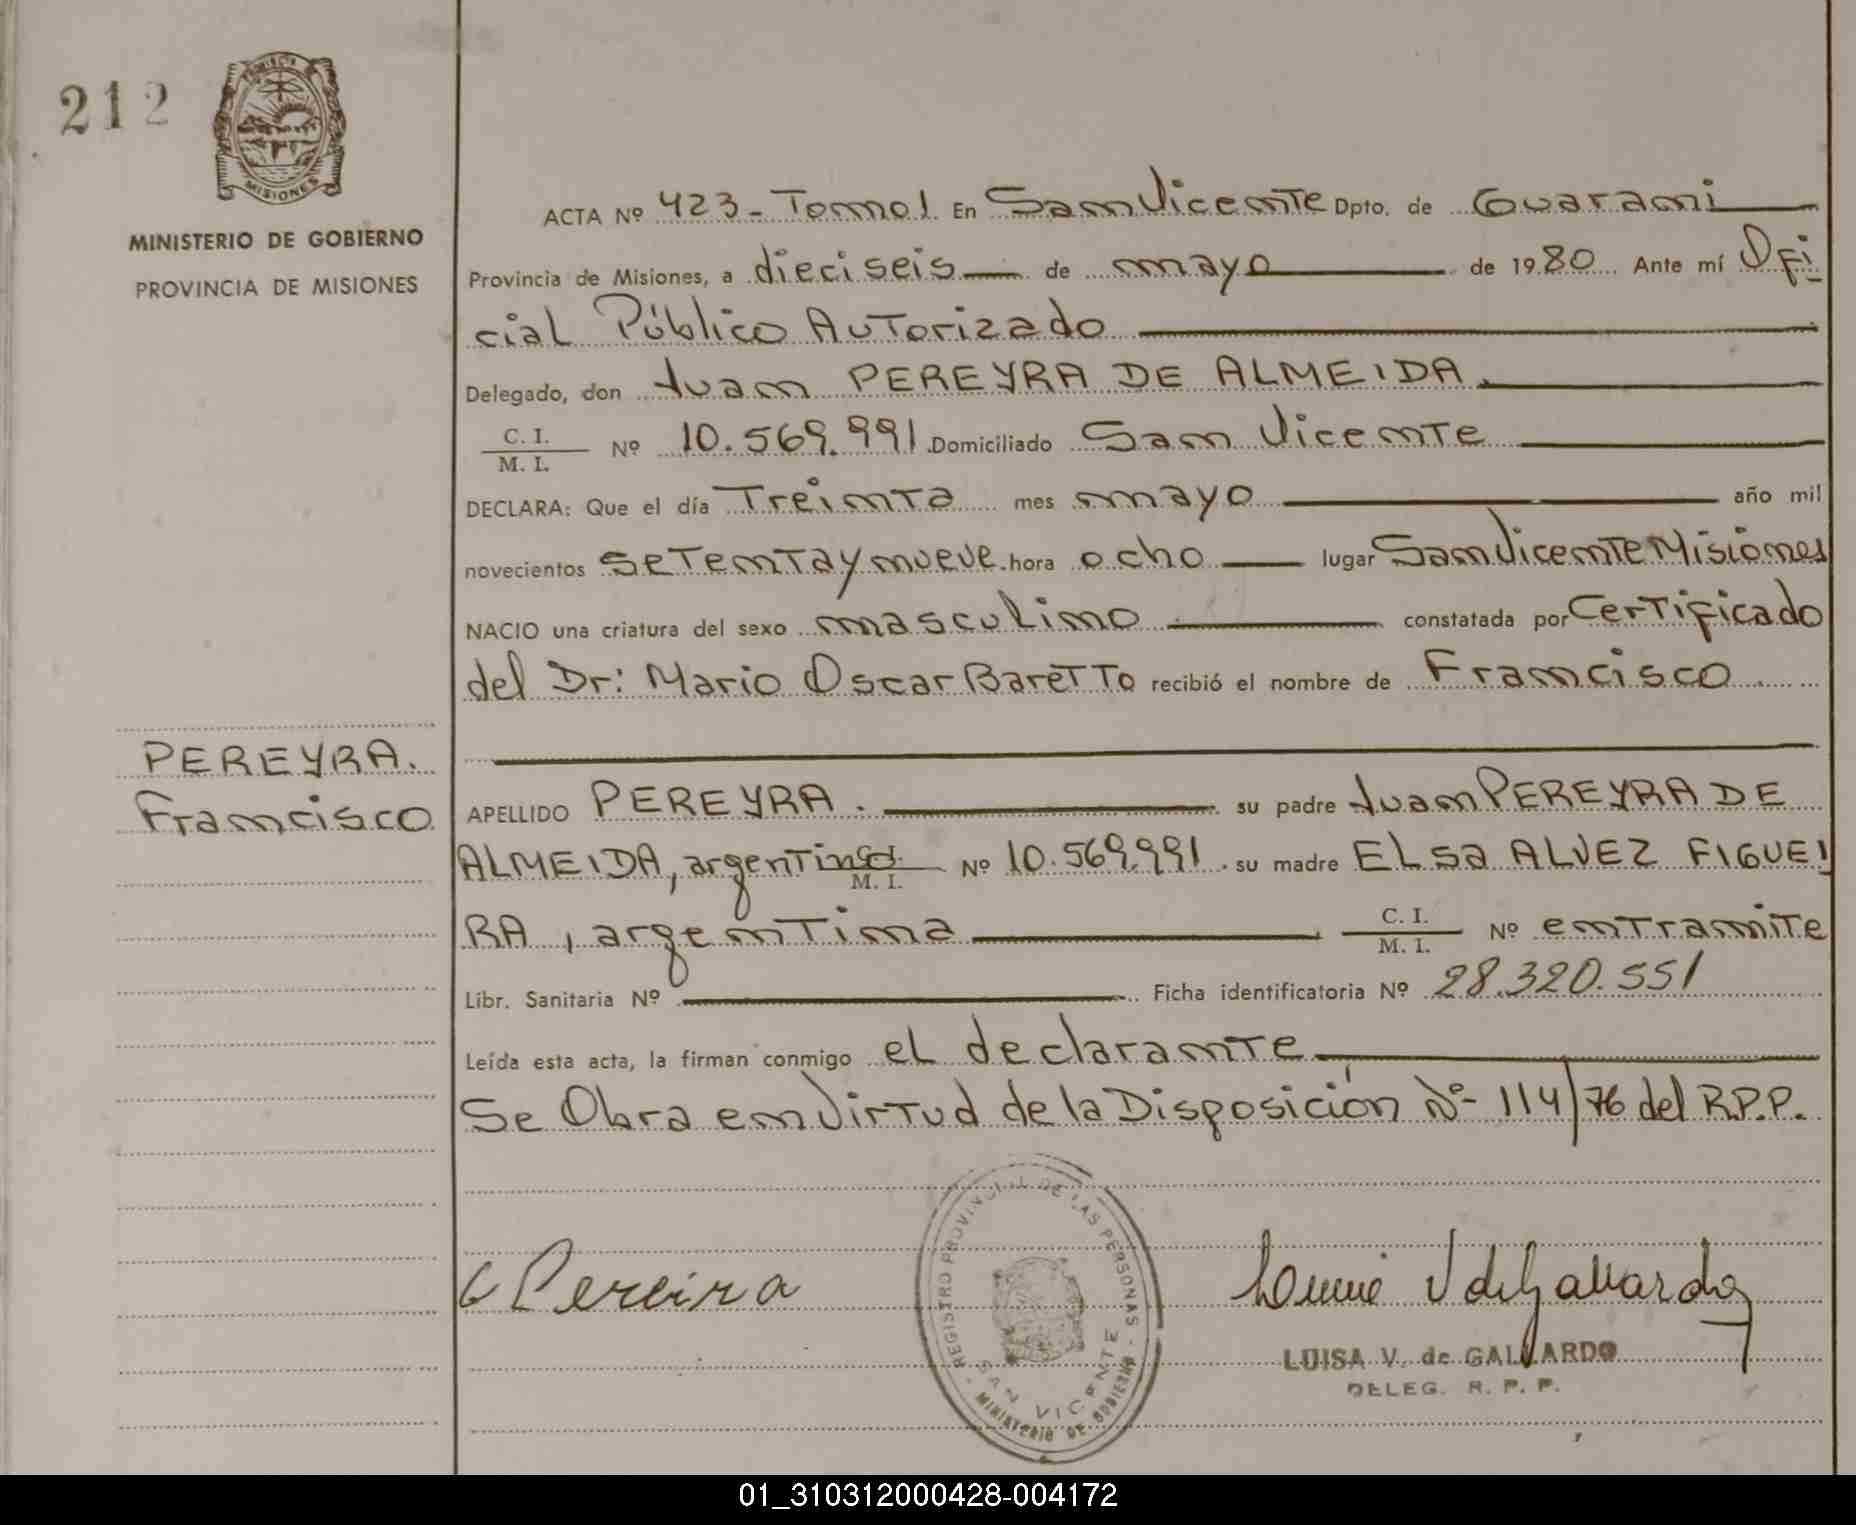 212
PROVINCIA DE
MISIONES
MINISTERIO DE GOBIERNO
PROVINCIA DE MISIONES
ACTA Nº 423 - Tomo I. En San Vicente Dpto. de Guarani
Provincia de Misiones, a dieciseis de mayo de 1980 Ante mí Ofi
cial Público Autorizado
Delegado, don Juan PEREYRA DE ALMEIDA.
C. I.
M. I. Nº 10.569.991 Domiciliado San Vicente
DECLARA: Que el día Treinta mes mayo año mil
novecientos setenta y nueve hora ocho lugar San Vicente Misiones
NACIO una criatura del sexo masculino constatada por Certificado
del Dr: Mario Oscar Baretto recibió el nombre de Francisco
PEREYRA.
Francisco
APELLIDO PEREYRA. su padre Juan PEREYRA DE
ALMEIDA, argentino C. I. M. I. Nº 10.569.991. su madre ELsa ALVEZ FIGUEI
RA, argentina C. I. M. I. Nº en tramite
Libr. Sanitaria Nº Ficha identificatoria Nº 28.320.551
Leída esta acta, la firman conmigo el declarante
Se Obra en Virtud de la Disposición Nº 114/76 del R.P.P.
Pereira
REGISTRO PROVINCIAL DE LAS PERSONAS
SAN VICENTE
MINISTERIO DE GOBIERNO
V de Gallardo
LUISA V. de GALLARDO
DELEG. R. P. P.
01_310312000428-004172